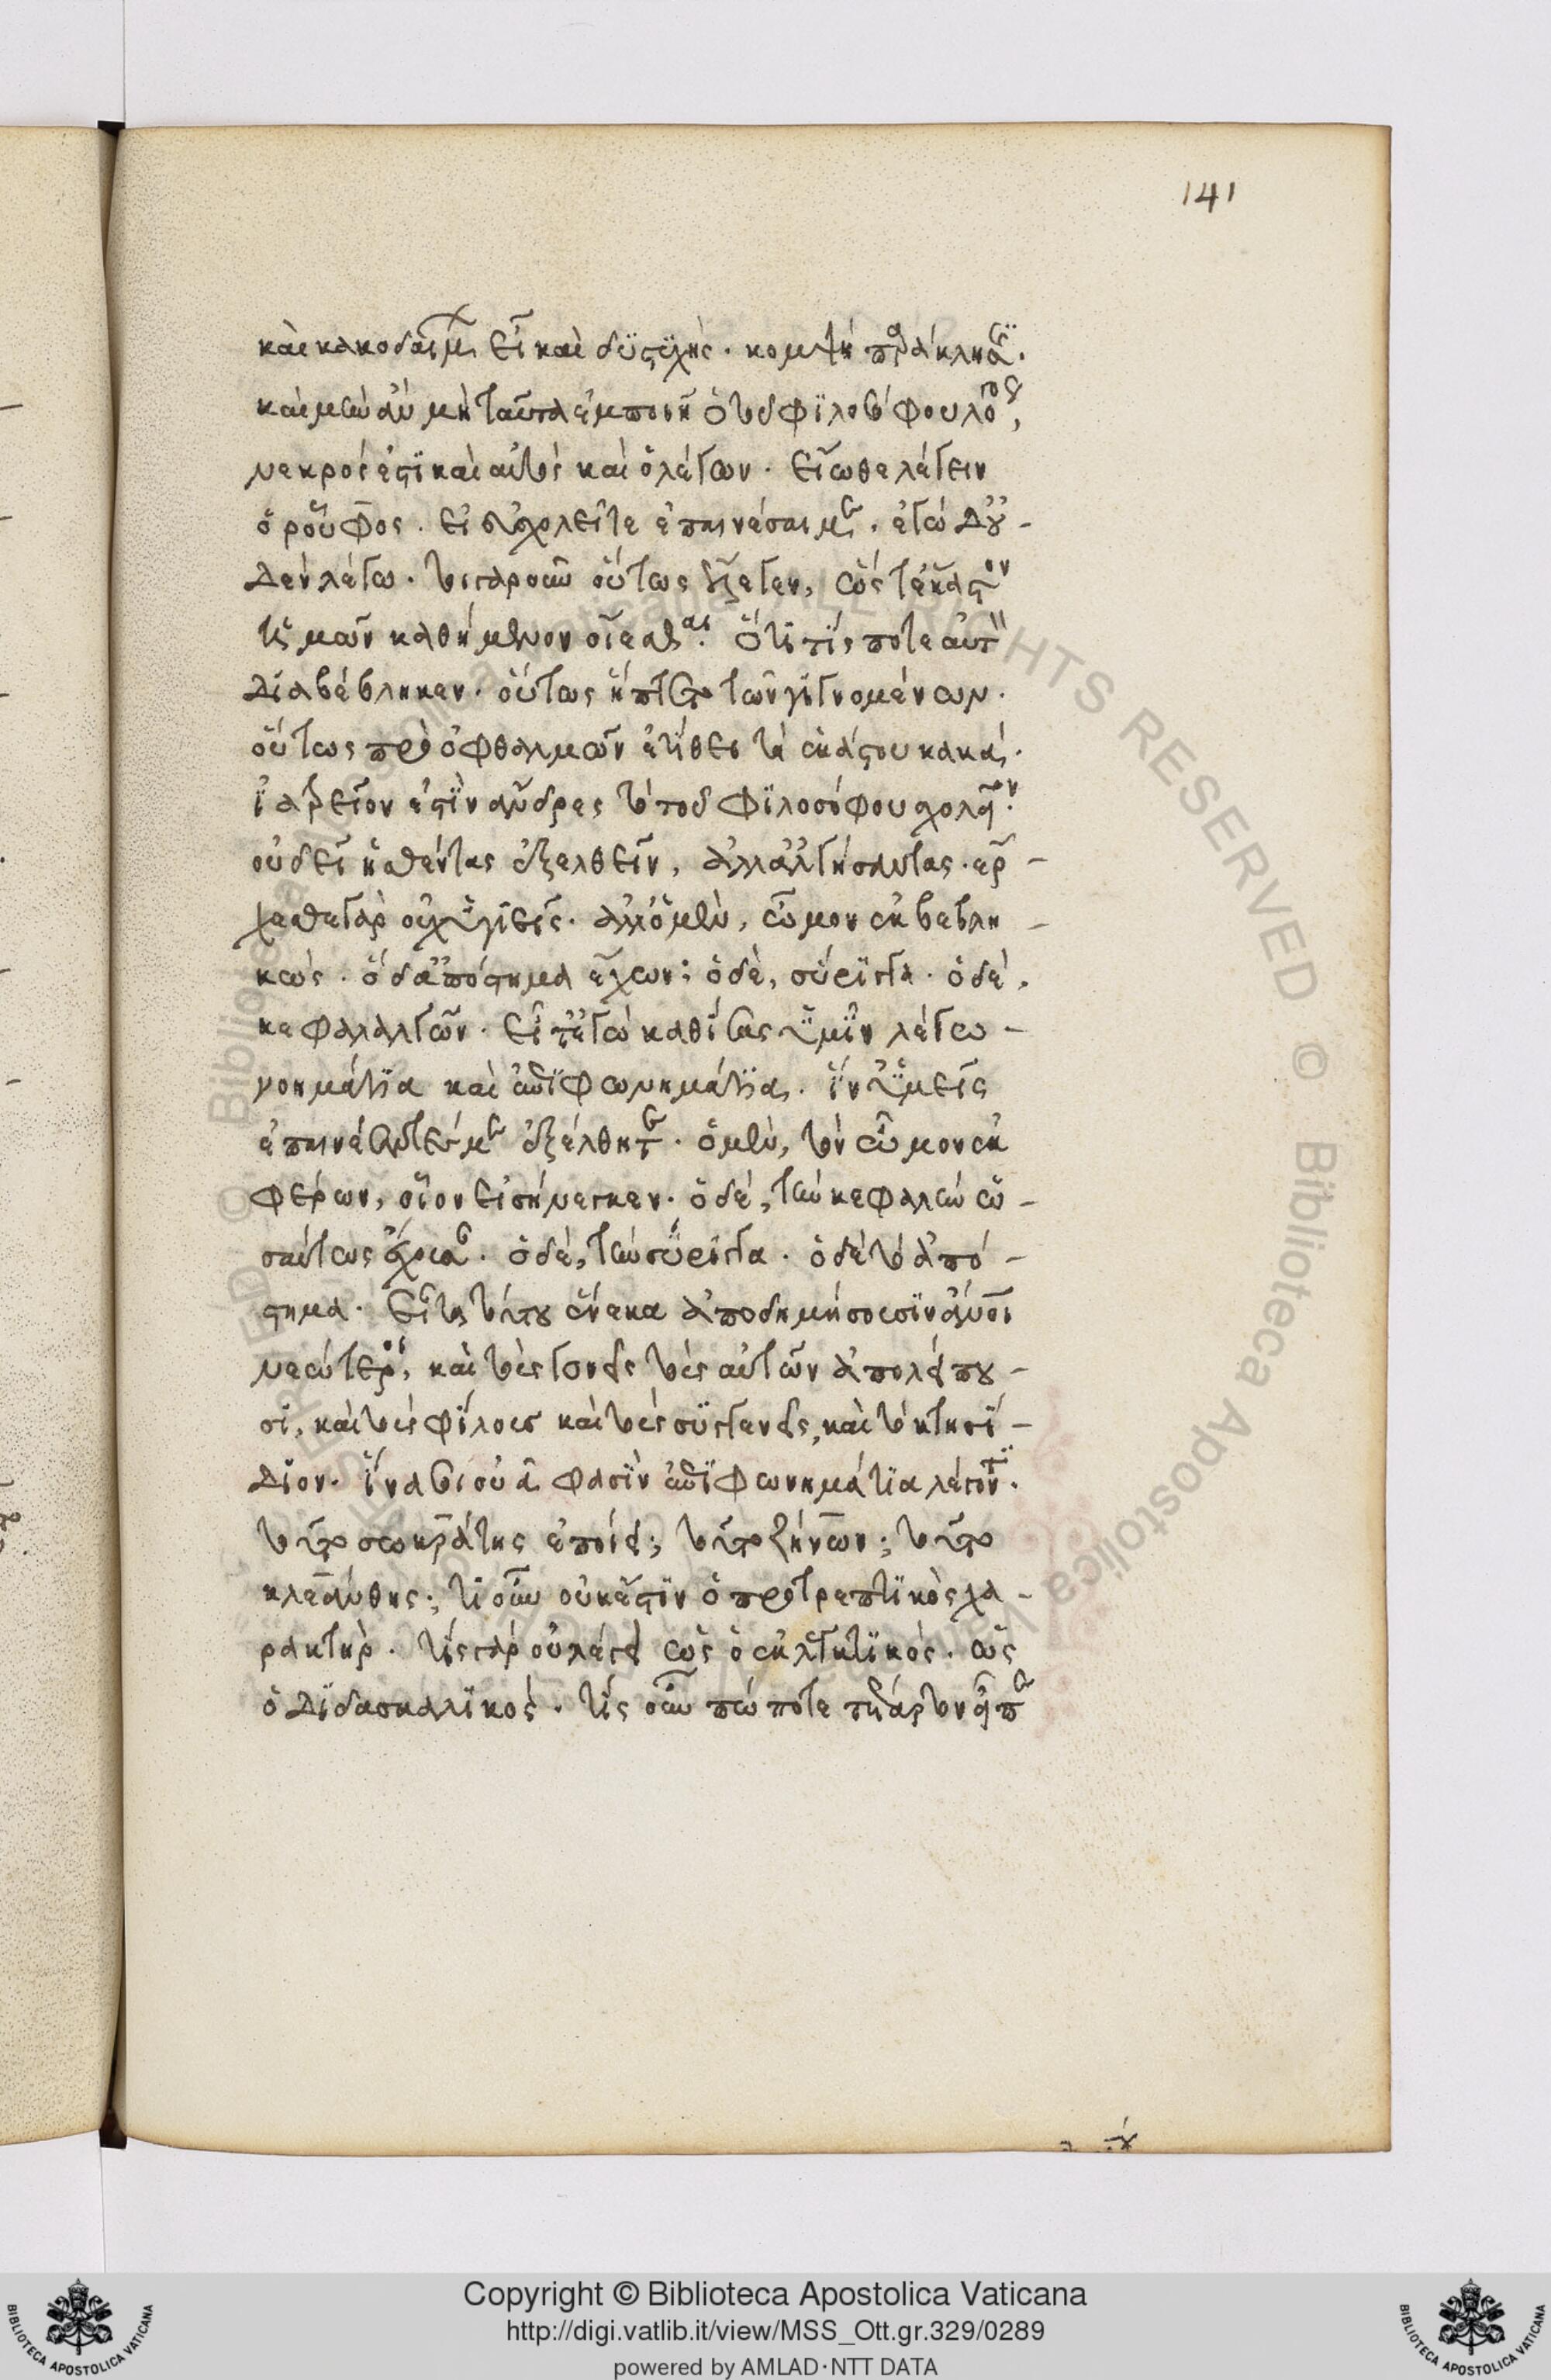 141
καὶ κακοδαίμων εἶ καὶ δυστυχής. κομψὴ παράκλησις.
καὶ μὴν ἂν μὴ ταῦτα ἐμποιῇ ὁ τοῦ φιλοσόφου λόγος,
νεκρός ἐστι καὶ αὐτὸς καὶ ὁ λέγων. εἴωθε λέγειν
ὁ ῥοῦφος. εἰ εὐσχολεῖτε ἐπαινέσαι με. ἐγὼ δ' οὐ-
δὲν λέγω. τοιγαροῦν οὕτως ἔλεγεν, ὥστε ἕκαστον
ἡμῶν καθήμενον οἴεσθαι. ὅτι τίς ποτε αὐτὸν
διαβέβληκεν. οὕτως ἥπτετο τῶν γιγνομένων.
οὕτως πρὸ ὀφθαλμῶν ἐτίθει τὰ ἑκάστου κακά.
ἰατρεῖόν ἐστιν ἄνδρες τὸ τοῦ φιλοσόφου σχολεῖον.
οὐ δεῖ ἡσθέντας ἐξελθεῖν, ἀλλ' ἀλγήσαντας. ἔρ-
χεσθε γὰρ οὐχ ὑγιεῖς. ἀλλ' ὁ μὲν, ὦμον ἐκβεβλη-
κώς. ὁ δ' ἀπόστημα ἔχων; ὁ δὲ, σύριγγα. ὁ δὲ,
κεφαλαλγῶν. εἶτ' ἐγὼ καθίσας ὑμῖν λέγω
νοημάτια καὶ ἐπιφωνημάτια. ἵν' ὑμεῖς
ἐπαινέσαντές με ἐξέλθητε. ὁ μὲν, τὸν ὦμον ἐκ
φέρων, οἷον εἰσήνεγκεν. ὁ δὲ, τὴν κεφαλὴν ὡ-
σαύτως ἔχουσαν. ὁ δὲ, τὴν σύριγγα. ὁ δὲ τὸ ἀπό-
στημα. εἶτα τούτου ἕνεκα ἀποδημήσουσιν ἄνθρωποι
νεώτεροι, καὶ τοὺς γονεῖς τοὺς αὐτῶν ἀπολείπου-
σι, καὶ τοὺς φίλους καὶ τοὺς συγγενεῖς, καὶ τὸ κτησί-
διον. ἵνα σοι οὐᾶ φασιν ἐπιφωνημάτια λέγοντι.
τοῦτο σωκράτης ἐποίει; τοῦτο ζήνων; τοῦτο
κλεάνθης; τί οὖν οὐκ ἔστιν ὁ προτρεπτικὸς χα-
ρακτήρ. τίς γὰρ οὐ λέγει ὡς ὁ ἐλεγκτικὸς. ὡς
ὁ διδασκαλικός. τίς οὖν πώποτε τέταρτον εἶπε